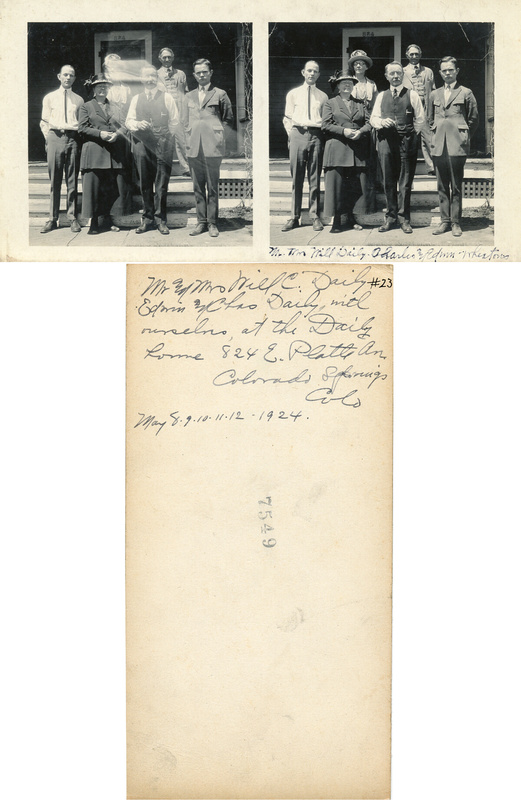 824
824
Mr. Mrs Will Daily. Charles & Edwin - Wheaton
Mr & Mrs Will C. Daily #23
Edwin & Chas Daily, with
ourselves, at the Daily
home, 824 E. Platte Av.
Colorado Springs
Colo
May 8-9-10-11-12-1924.
7549